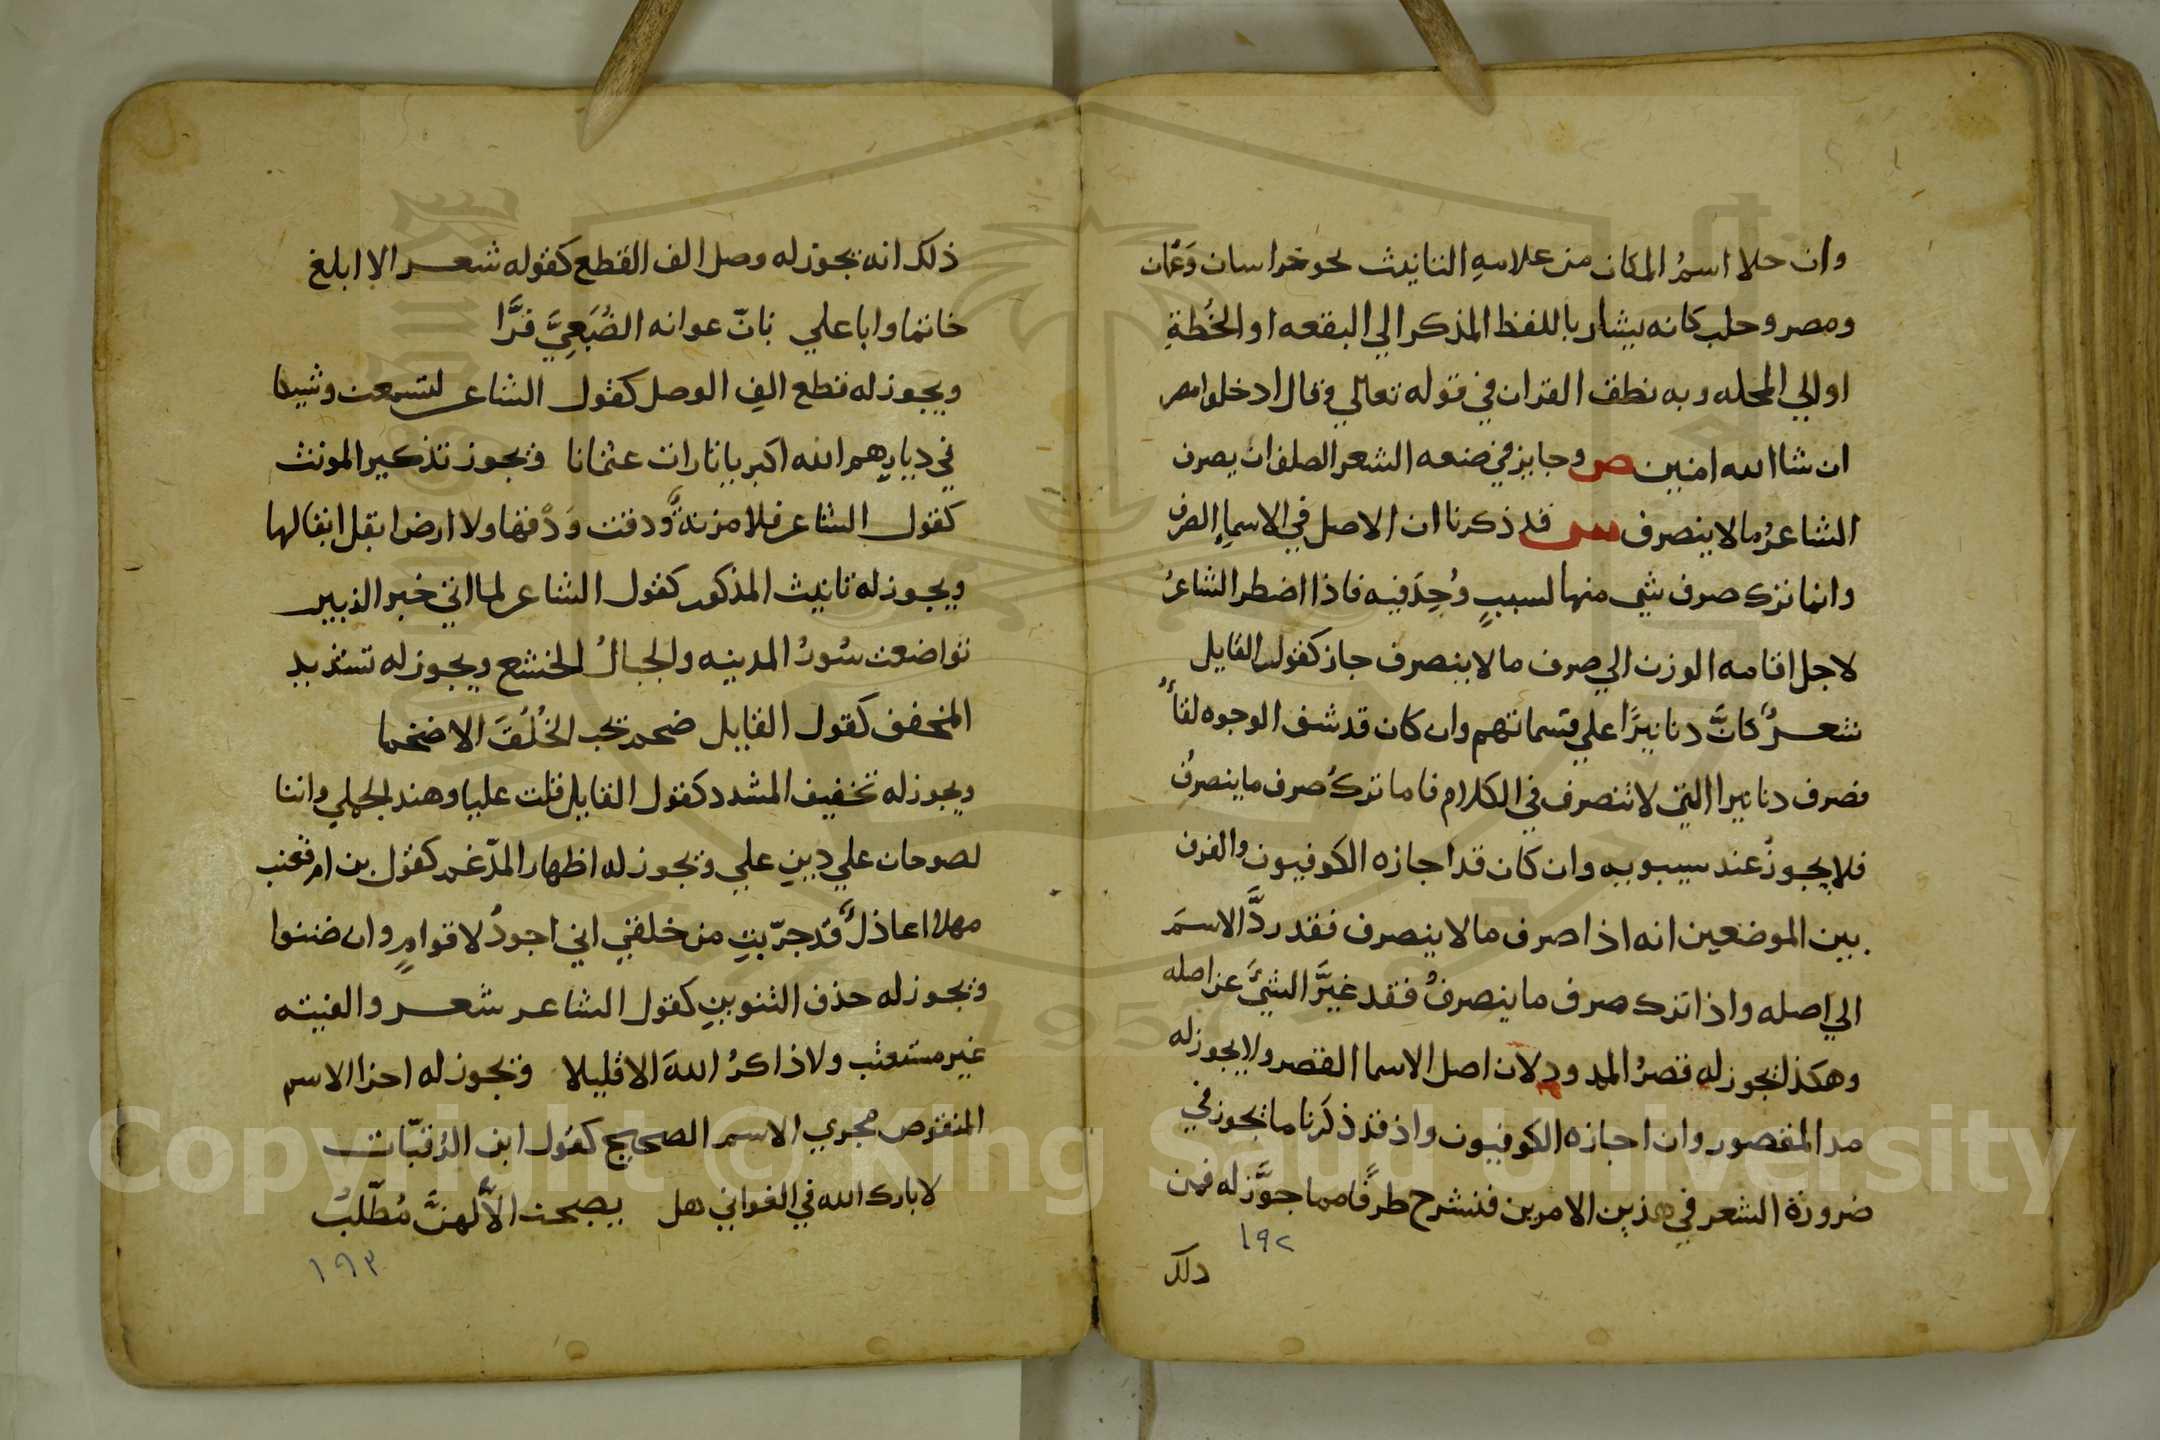 وان خلا اسمُ المكان من علامهِ التانيث نحو خراسان وعُمان
ومصر وحلب كانه يشار باللفظ المذكر الي البقعه او الخُطةِ
او الي المحله وبه نطق القران في قوله تعالي وقال ادخلوا مصر
ان شا الله امنين ص وجايز في صنعه الشعر الصلف ان يصرف
الشاعرُ ما لا ينصرف س قد ذكرنا ان الاصل في الاسماءِ الصرف
وانما ترك صرف شي منها لسببٍ وُجِدَ فيه فاذا اضطر الشاعرُ
لاجل اقامه الوزن الي صرف ما لا ينصرف جاز كقول القايل
شعرٌ كانَّ دنانيرًا علي قسماتهم وان كان قد شف الوجوه لقاءُ
فصرف دنانيرا التي لا تنصرف في الكلام فاما تركُ صرف ما ينصرفُ
فلا يجوزُ عند سيبويه وان كان قد اجازه الكوفيون والفرق
بين الموضعين انه اذا صرف ما لا ينصرف فقد ردَّ الاسمَ
الي اصله واذا ترك صرف ما ينصرفُ فقد غيَّر الشيَّ عن اصله
وهكذا يجوز له قصرُ الممدود لان اصل الاسما القصر ولا يجوز له
مد المقصور وان اجازه الكوفيون واذ قد ذكرنا ما يجوز في
ضرورة الشعر في هذين الامرين فنشرح طرفًا مما جوَّز له فمن
١٩٢
ذلك
ذلك انه يجوز له وصل الف القطع كقوله شعر الا ابلغ
حاتما وابا علي بانّ عوانه الضُبَعِيَّ فرَّا
ويجوز له قطع الفِ الوصل كقول الشاعر لتسمعن وشيكا
في ديارهم الله اكبر يا ثارات عثمانا ويجوز تذكير المونث
كقول الشاعر فلا مزنةٌ ودقت وَدْقها ولا ارض ابقل ابقالها
ويجوز له تانيث المذكور كقول الشاعر لما اتي خبر الزبير
تواضعت سُورُ المدينه والجبالُ الخشع ويجوز له تشديد
المخفف كقول القايل ضخم يحب الخُلُقَ الاضخما
ويجوز له تخفيف المشدد كقول القايل قتلت عليا وهند الجملي وابنا
لصوحان علي دينِ علي ويجوز له اظهار المدّغم كقول بن ام قعنب
مهلا اعاذلَ قد جرّبتِ من خلقي اني اجودُ لاقوامٍ وان ضننوا
ويجوز له حذف التنوينِ كقول الشاعر شعر والفيته
غير مستعتب ولا ذاكرُ اللهَ الا قليلا ويجوز له اجرا الاسم
المنقوص مجري الاسم الصحيح كقول ابن الرُقيّات
لا بارك الله في الغواني هل يصبحن الاَّ لهنَّ مُطّلبُ
١٩٣
Copyright © King Saud University
1957